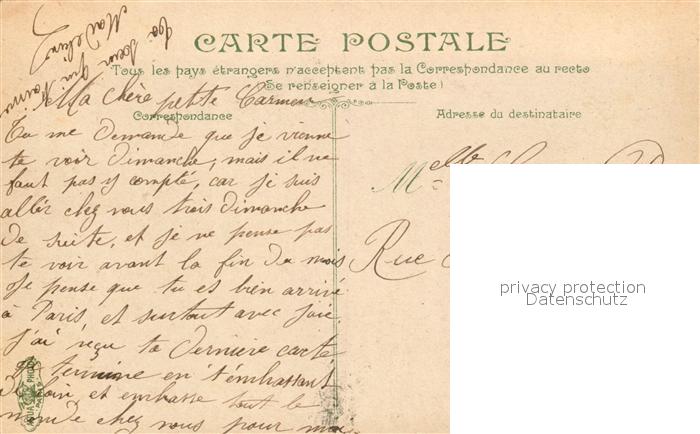 CARTE POSTALE
Tous les pays étrangers n'acceptent pas la Correspondance au recto
(Se renseigner à la Poste)
Correspondance
Adresse du destinataire
Ma chère petite Carmen
Tu me demande que je vienne
te voir dimanche, mais il ne
faut pas y compté, car je suis
allér chez vous trois dimanche
de suite, et je ne pense pas
te voir avant la fin du mois
Je pense que tu es bien arrivé
à Paris, et surtout avec joie.
j'ai reçu ta dernière carte
je termine en t'embrassant
de loin, et embrasse tout le
monde chez vous pour moi
ta sœur qui t'aime
Madeleine
Melle
Rue
privacy protection
Datenschutz